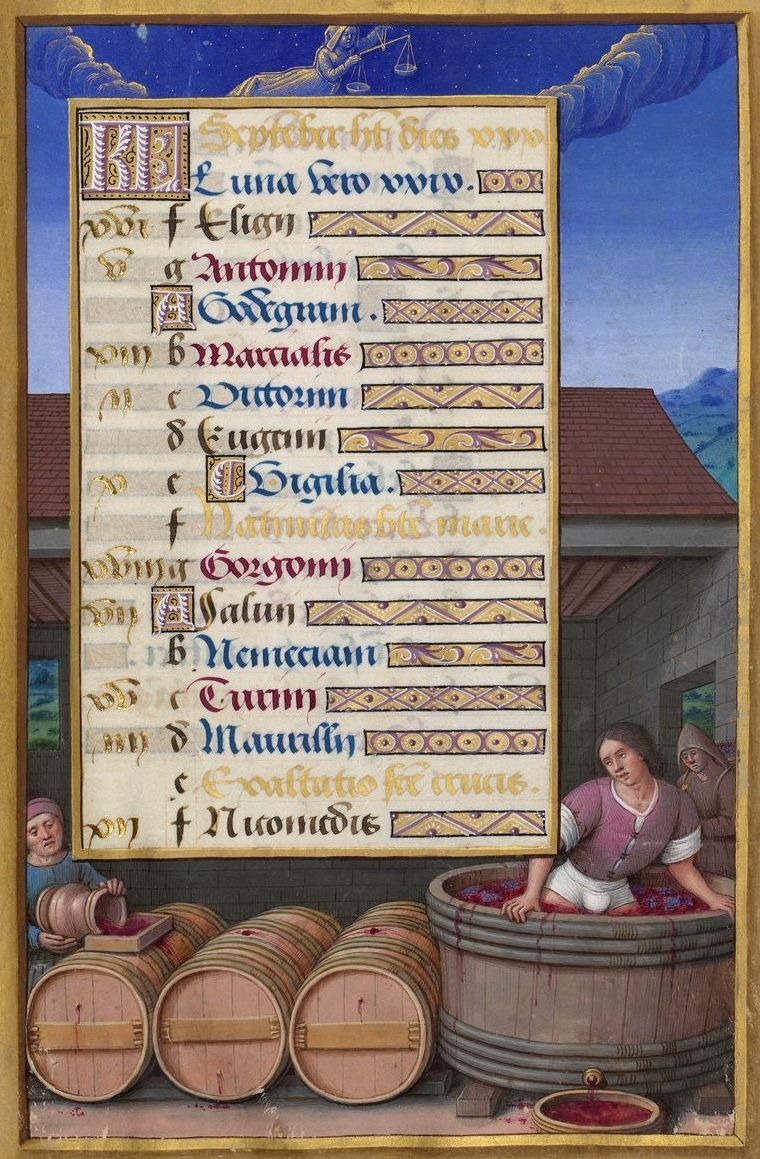 KL Septēber ht dies xxx.
Luna vero xxix.
xvi f Eligii
v g Antonini
A Godegram.
xiii b Marcialis
ii c Victorini
d Eugenii
x e Vigilia.
f Nativitas bte marie.
xviii g Gorgonii
vii A Salvii
b Nemeciani
xv c Turini
iiii d Maurilii
e Exaltatio scē crucis.
xii f Nicomedis